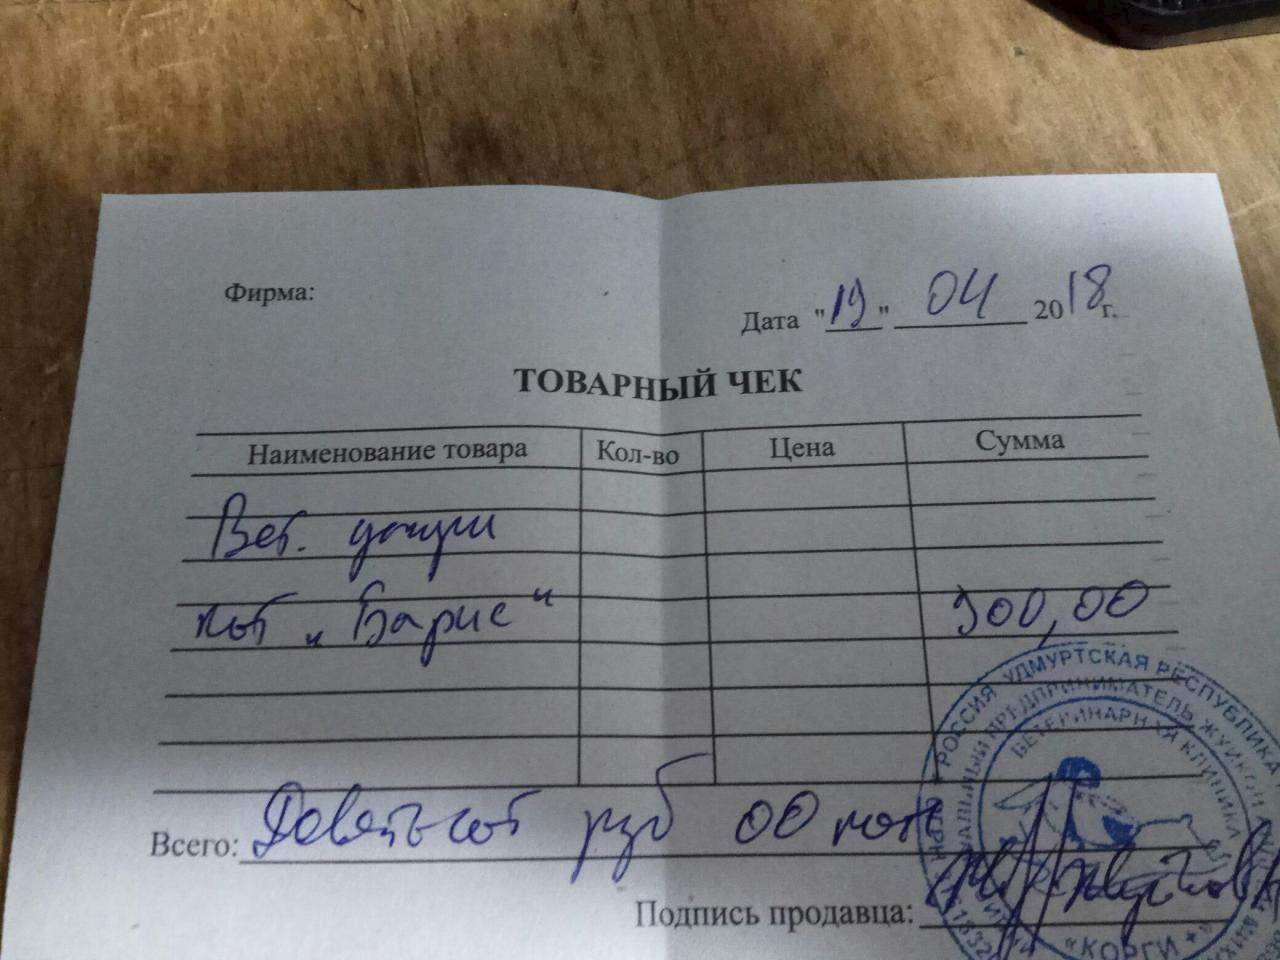 Фирма:
Дата "19" 04 2018г.
ТОВАРНЫЙ ЧЕК
Наименование товара Кол-во Цена Сумма
Вет. услуги
кот „Барис“ 900,00
Всего: Девятьсот руб 00 коп
Подпись продавца:
РОССИЯ УДМУРТСКАЯ РЕСПУБЛИКА
ПРЕДПРИНИМАТЕЛЬ
ВЕТЕРИНАРНАЯ КЛИНИКА
«КОРГИ»